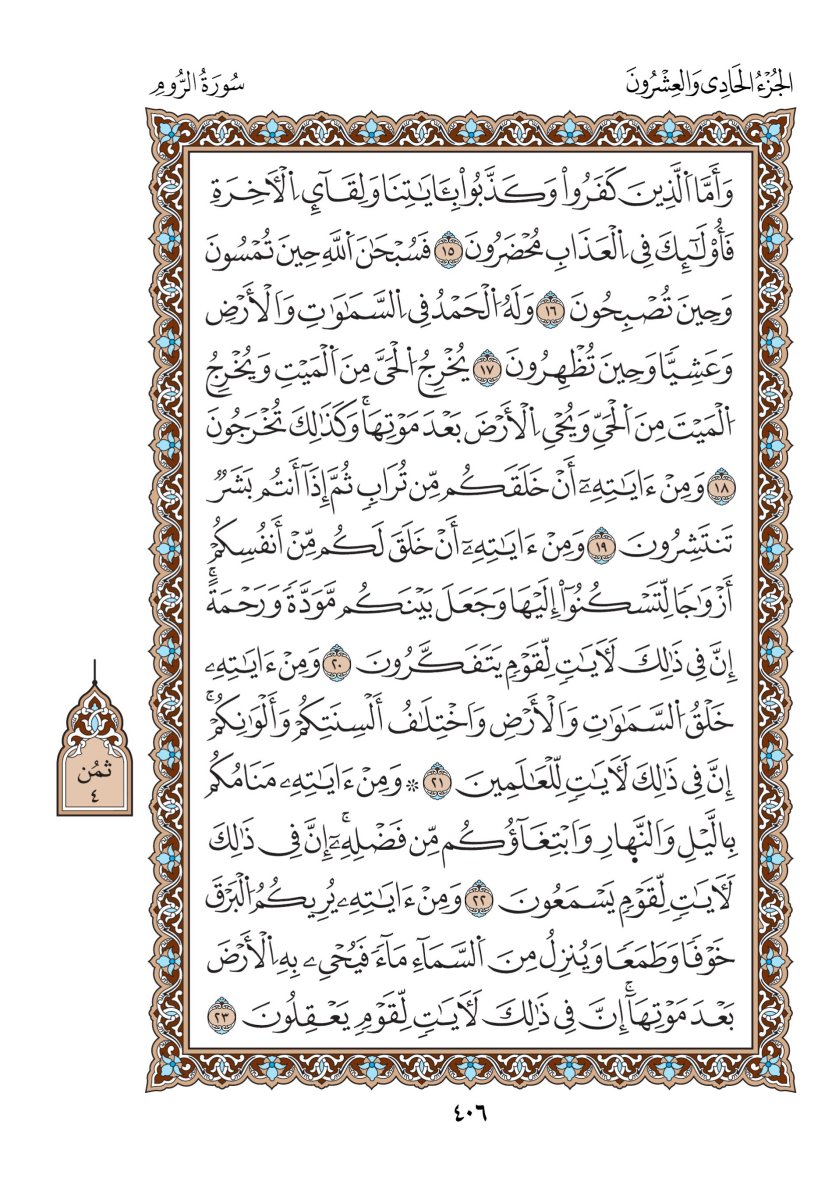 الجُزْءُ الحَادِي وَالعِشْرُونَ
سُورَةُ الرُّومِ
وَأَمَّا اَ۬لَّذِينَ كَفَرُواْ وَكَذَّبُواْ بِـَٔايَٰتِنَا وَلِقَآءِےْ اِ۬لْأَخِرَةِ
فَأُوْلَٰٓئِكَ فِي اِ۬لْعَذَابِ مُحْضَرُونَ ١٥ فَسُبْحَٰنَ اَ۬للَّهِ حِينَ تُمْسُونَ
وَحِينَ تُصْبِحُونَ ١٦ وَلَهُ اُ۬لْحَمْدُ فِي اِ۬لسَّمَٰوَٰتِ وَالْأَرْضِ
وَعَشِيّٗا وَحِينَ تُظْهِرُونَ ١٧ يُخْرِجُ اُ۬لْحَيَّ مِنَ اَ۬لْمَيْتِ وَيُخْرِجُ
اُ۬لْمَيْتَ مِنَ اَ۬لْحَيِّ وَيُحْيِ اِ۬لْأَرْضَ بَعْدَ مَوْتِهَاۚ وَكَذَٰلِكَ تُخْرَجُونَ
١٨ وَمِنْ ءَايَٰتِهِۦٓ أَنْ خَلَقَكُم مِّن تُرَابٖ ثُمَّ إِذَآ أَنتُم بَشَرٞ
تَنتَشِرُونَ ١٩ وَمِنْ ءَايَٰتِهِۦٓ أَنْ خَلَقَ لَكُم مِّنْ أَنفُسِكُمْ
أَزْوَٰجٗا لِّتَسْكُنُوٓاْ إِلَيْهَا وَجَعَلَ بَيْنَكُم مَّوَدَّةٗ وَرَحْمَةًۚ
إِنَّ فِي ذَٰلِكَ لَأٓيَٰتٖ لِّقَوْمٖ يَتَفَكَّرُونَ ٢٠ وَمِنْ ءَايَٰتِهِۦ
خَلْقُ اُ۬لسَّمَٰوَٰتِ وَالْأَرْضِ وَاخْتِلَٰفُ أَلْسِنَتِكُمْ وَأَلْوَٰنِكُمْۚ
إِنَّ فِي ذَٰلِكَ لَأٓيَٰتٖ لِّلْعَٰلَمِينَ ٢١ ۞ وَمِنْ ءَايَٰتِهِۦ مَنَامُكُم
بِالَّيْلِ وَالنَّهَارِ وَابْتِغَآؤُكُم مِّن فَضْلِهِۦٓۚ إِنَّ فِي ذَٰلِكَ
لَأٓيَٰتٖ لِّقَوْمٖ يَسْمَعُونَ ٢٢ وَمِنْ ءَايَٰتِهِۦ يُرِيكُمُ اُ۬لْبَرْقَ
خَوْفٗا وَطَمَعٗا وَيُنزِلُ مِنَ اَ۬لسَّمَآءِ مَآءٗ فَيُحْيِۦ بِهِ اِ۬لْأَرْضَ
بَعْدَ مَوْتِهَآۚ إِنَّ فِي ذَٰلِكَ لَأٓيَٰتٖ لِّقَوْمٖ يَعْقِلُونَ ٢٣
ثمُن
٤
٤٠٦